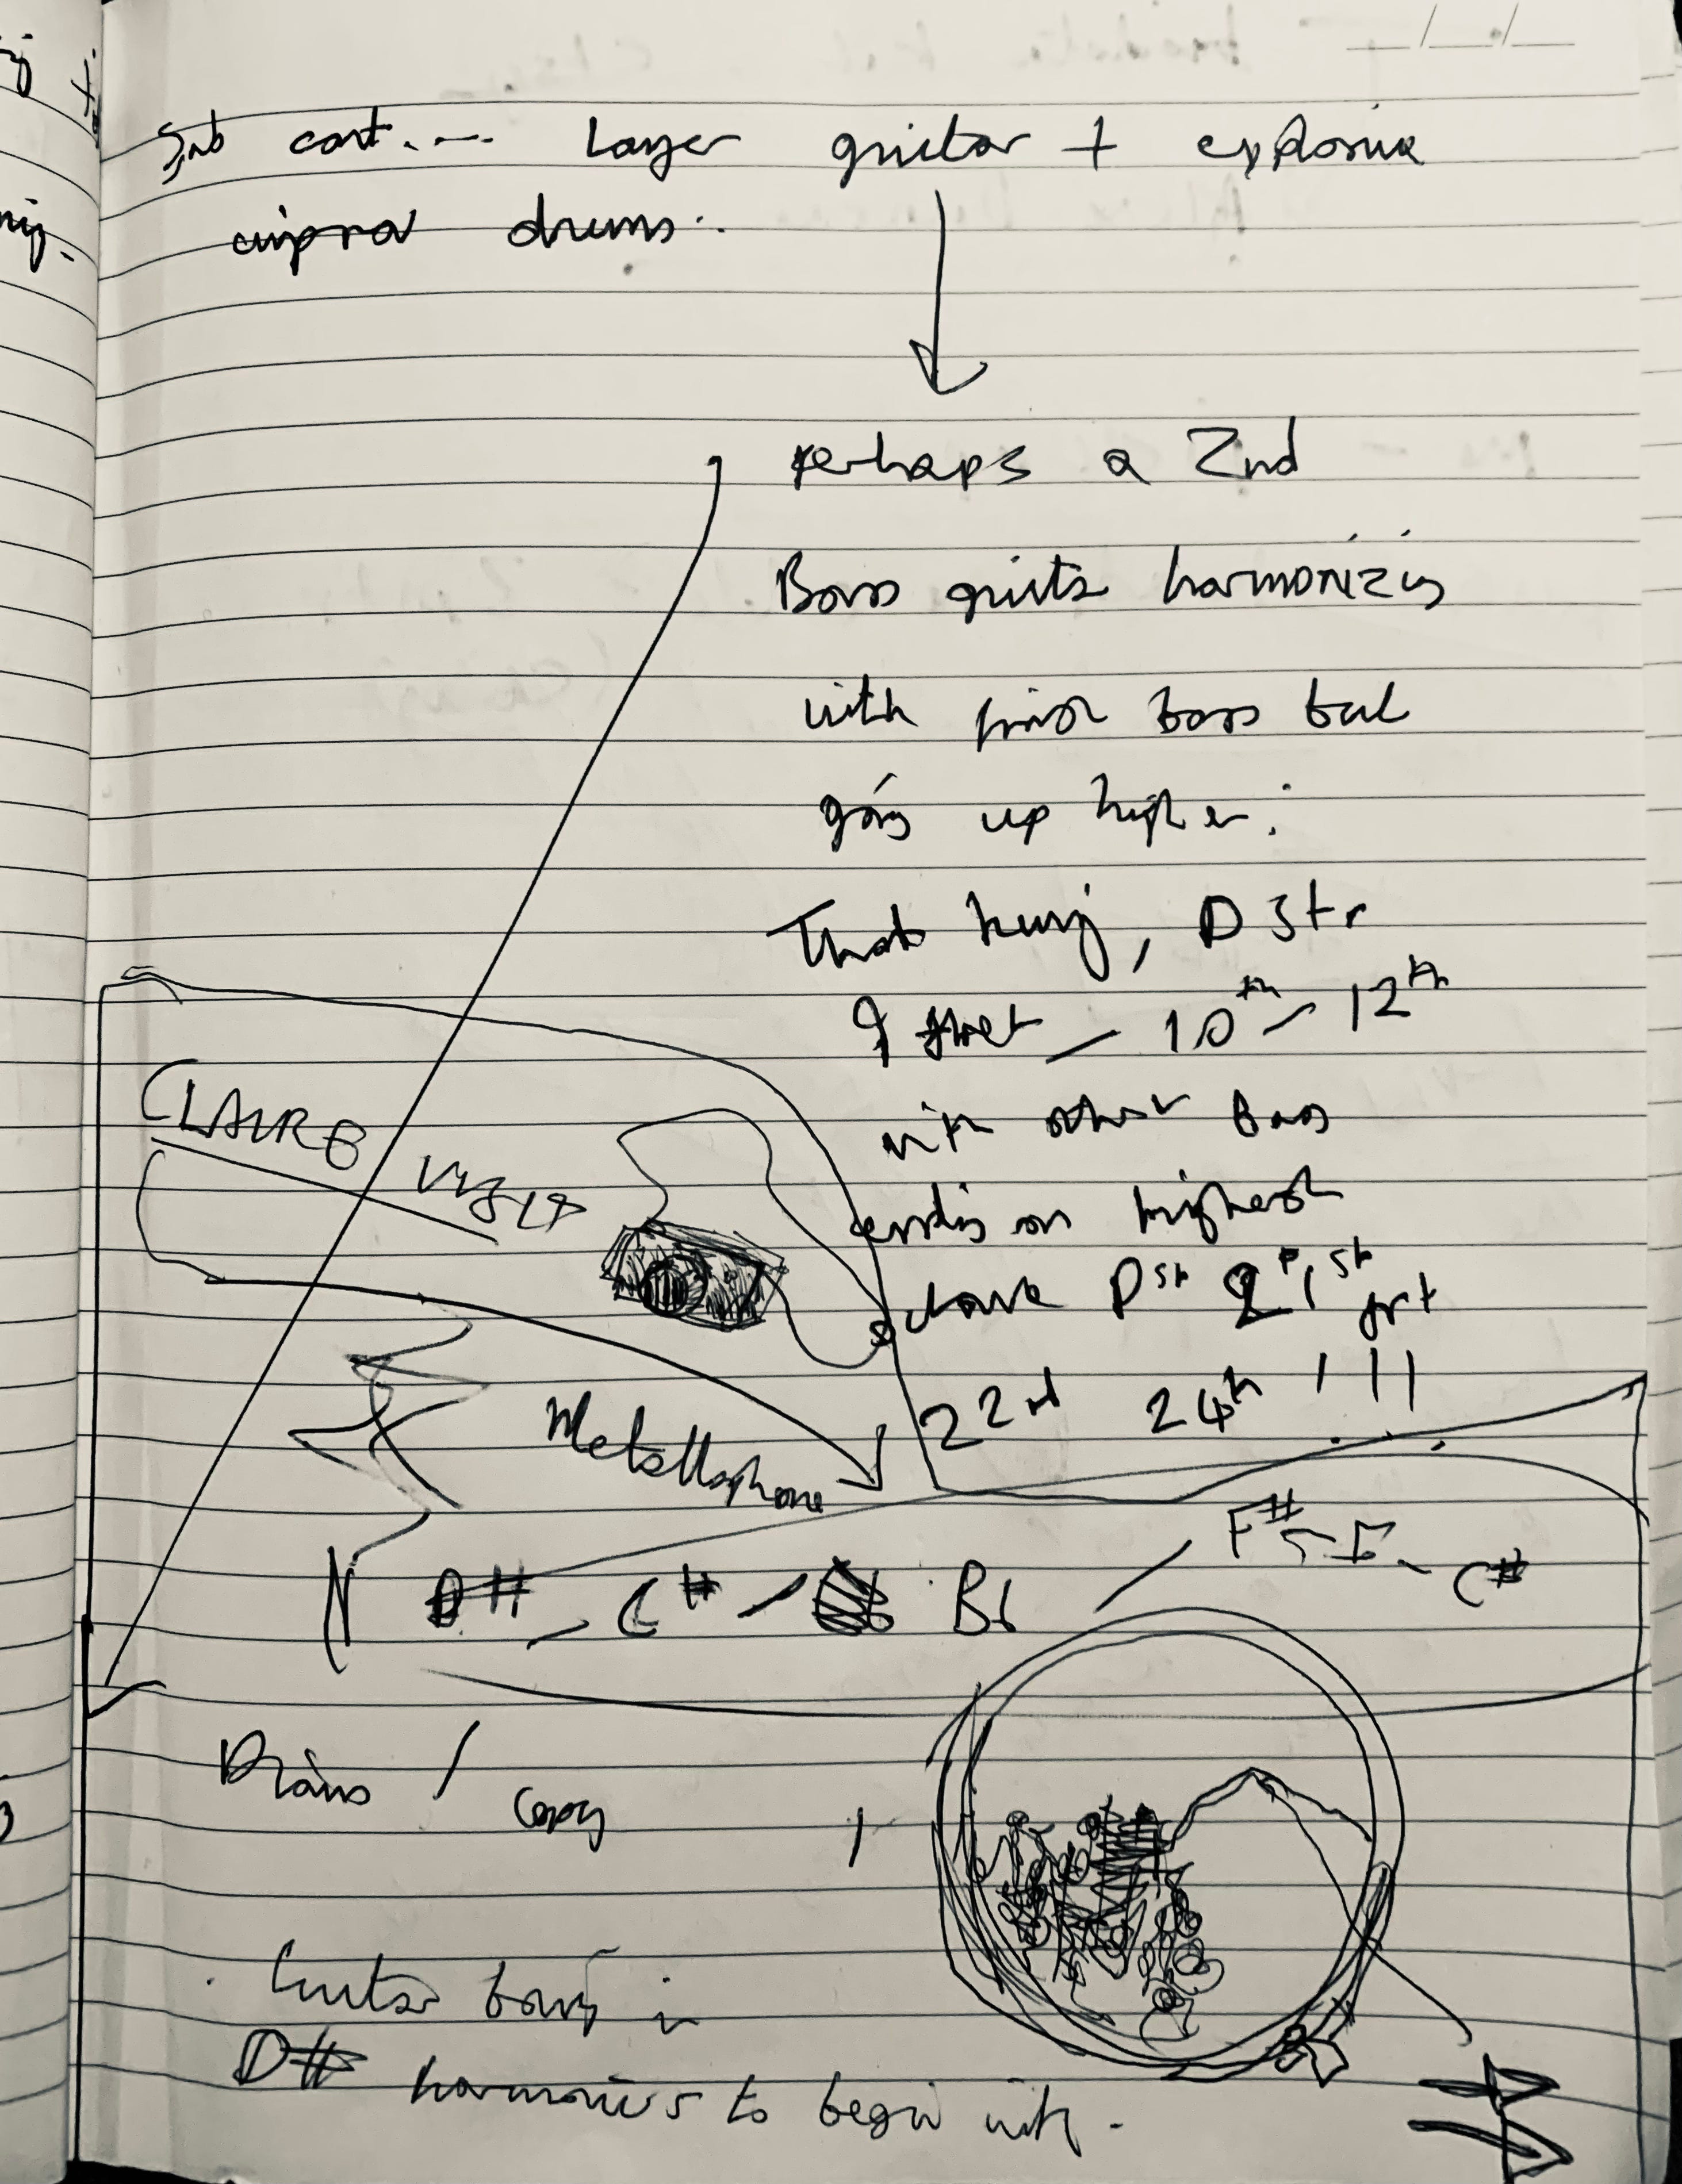 Sub cont.... Layer guitar + explosive
improv drums.
perhaps a 2nd
Bass guitar harmonizing
with first bass but
going up higher.
That being, D Str
9 fret — 10th — 12th
with other Bass
ending on highest
octave D St 21st frt
22nd 24th !!!
CLAIRE
Metallophone
D# — C# / Bb / F# — F — C#
Piano / Copy
Guitar in
D# harmonics to begin with.